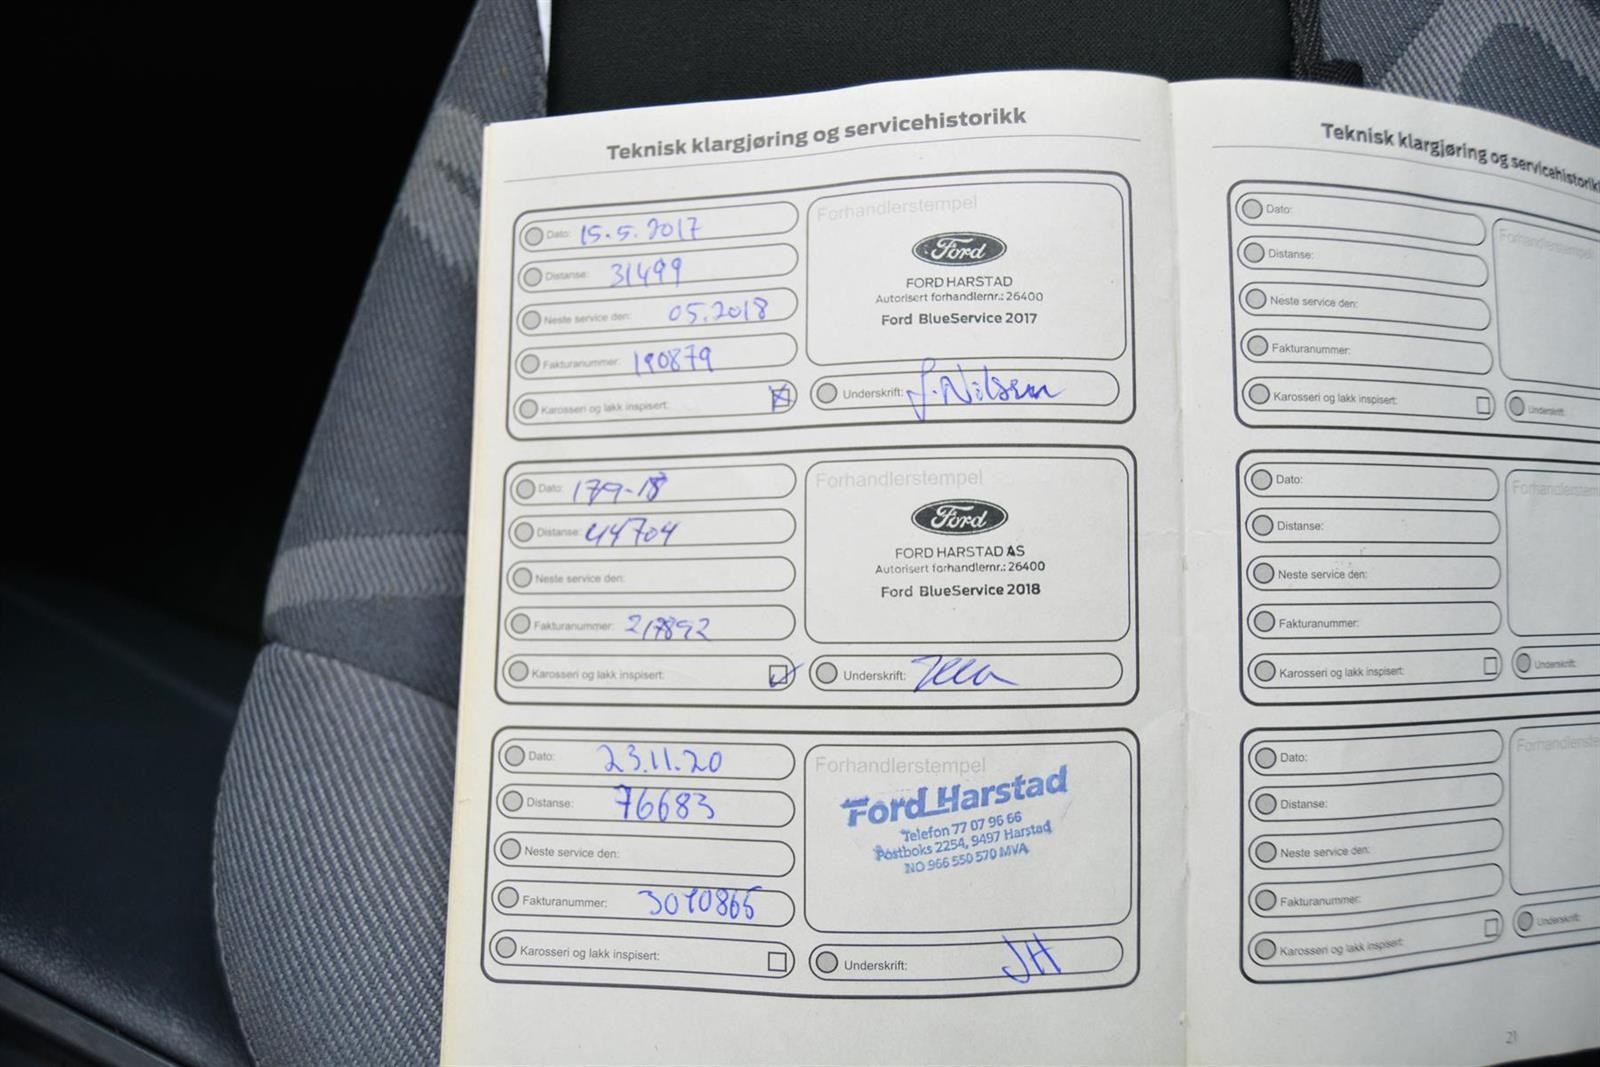 Teknisk klargjøring og servicehistorikk
Dato: 15.5.2017
Distanse: 31499
Neste service den: 05.2018
Fakturanummer: 190879
Karosseri og lakk inspisert:
Forhandlerstempel
Ford
FORD HARSTAD
Autorisert forhandlernr.: 26400
Ford BlueService 2017
Underskrift: J. Nilsen
Dato:
Distanse: 44704
Neste service den:
Fakturanummer: 217892
Karosseri og lakk inspisert:
Forhandlerstempel
Ford
FORD HARSTAD AS
Autorisert forhandlernr.: 26400
Ford BlueService 2018
Underskrift:
Dato: 23.11.20
Distanse: 76683
Neste service den:
Fakturanummer: 3070865
Karosseri og lakk inspisert:
Forhandlerstempel
Ford Harstad
Telefon 77 07 96 66
Postboks 2254, 9497 Harstad
NO 966 550 570 MVA
Underskrift: JH
Teknisk klargjøring og servicehistorik
Dato:
Distanse:
Neste service den:
Fakturanummer:
Karosseri og lakk inspisert:
Forhandlerstempel
Underskrift:
Dato:
Distanse:
Neste service den:
Fakturanummer:
Karosseri og lakk inspisert:
Forhandlerstem
Underskrift:
Dato:
Distanse:
Neste service den:
Fakturanummer:
Karosseri og lakk inspisert:
Forhandlerste
Underskrift:
21